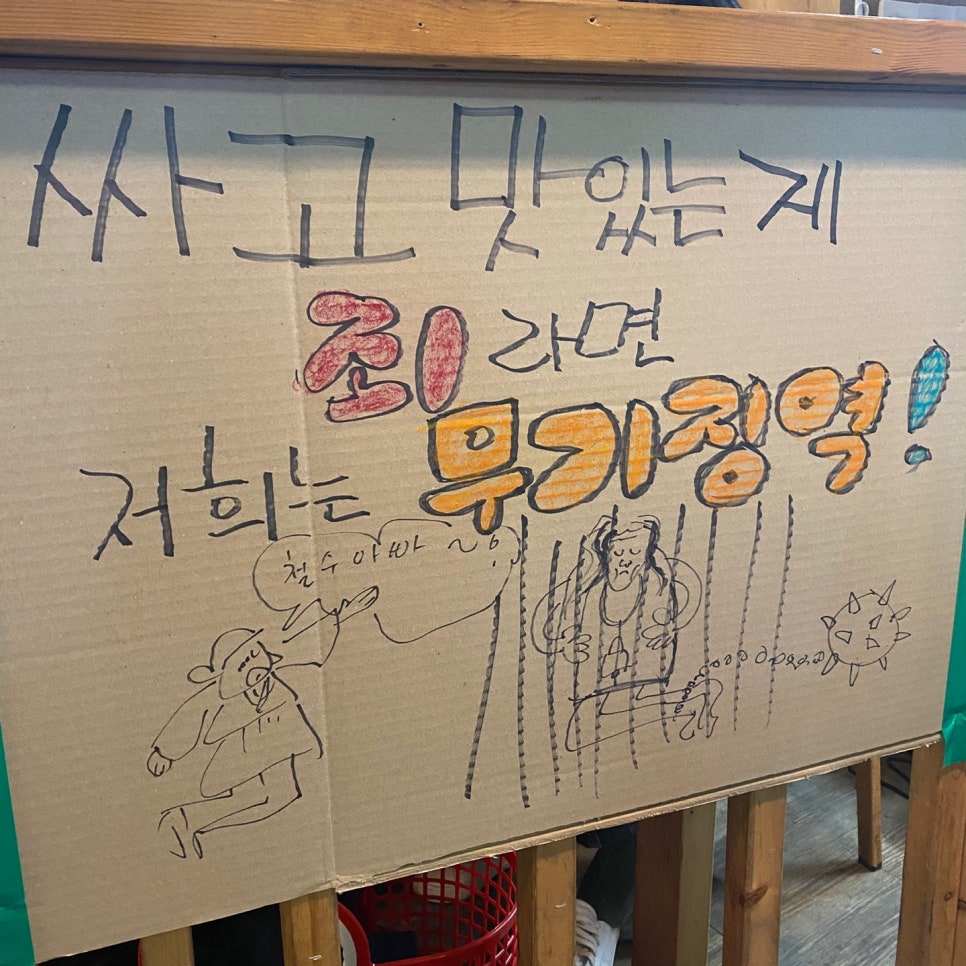 싸고 맛있는 게
죄 라면
저희는 무기징역!
철수아빠~!